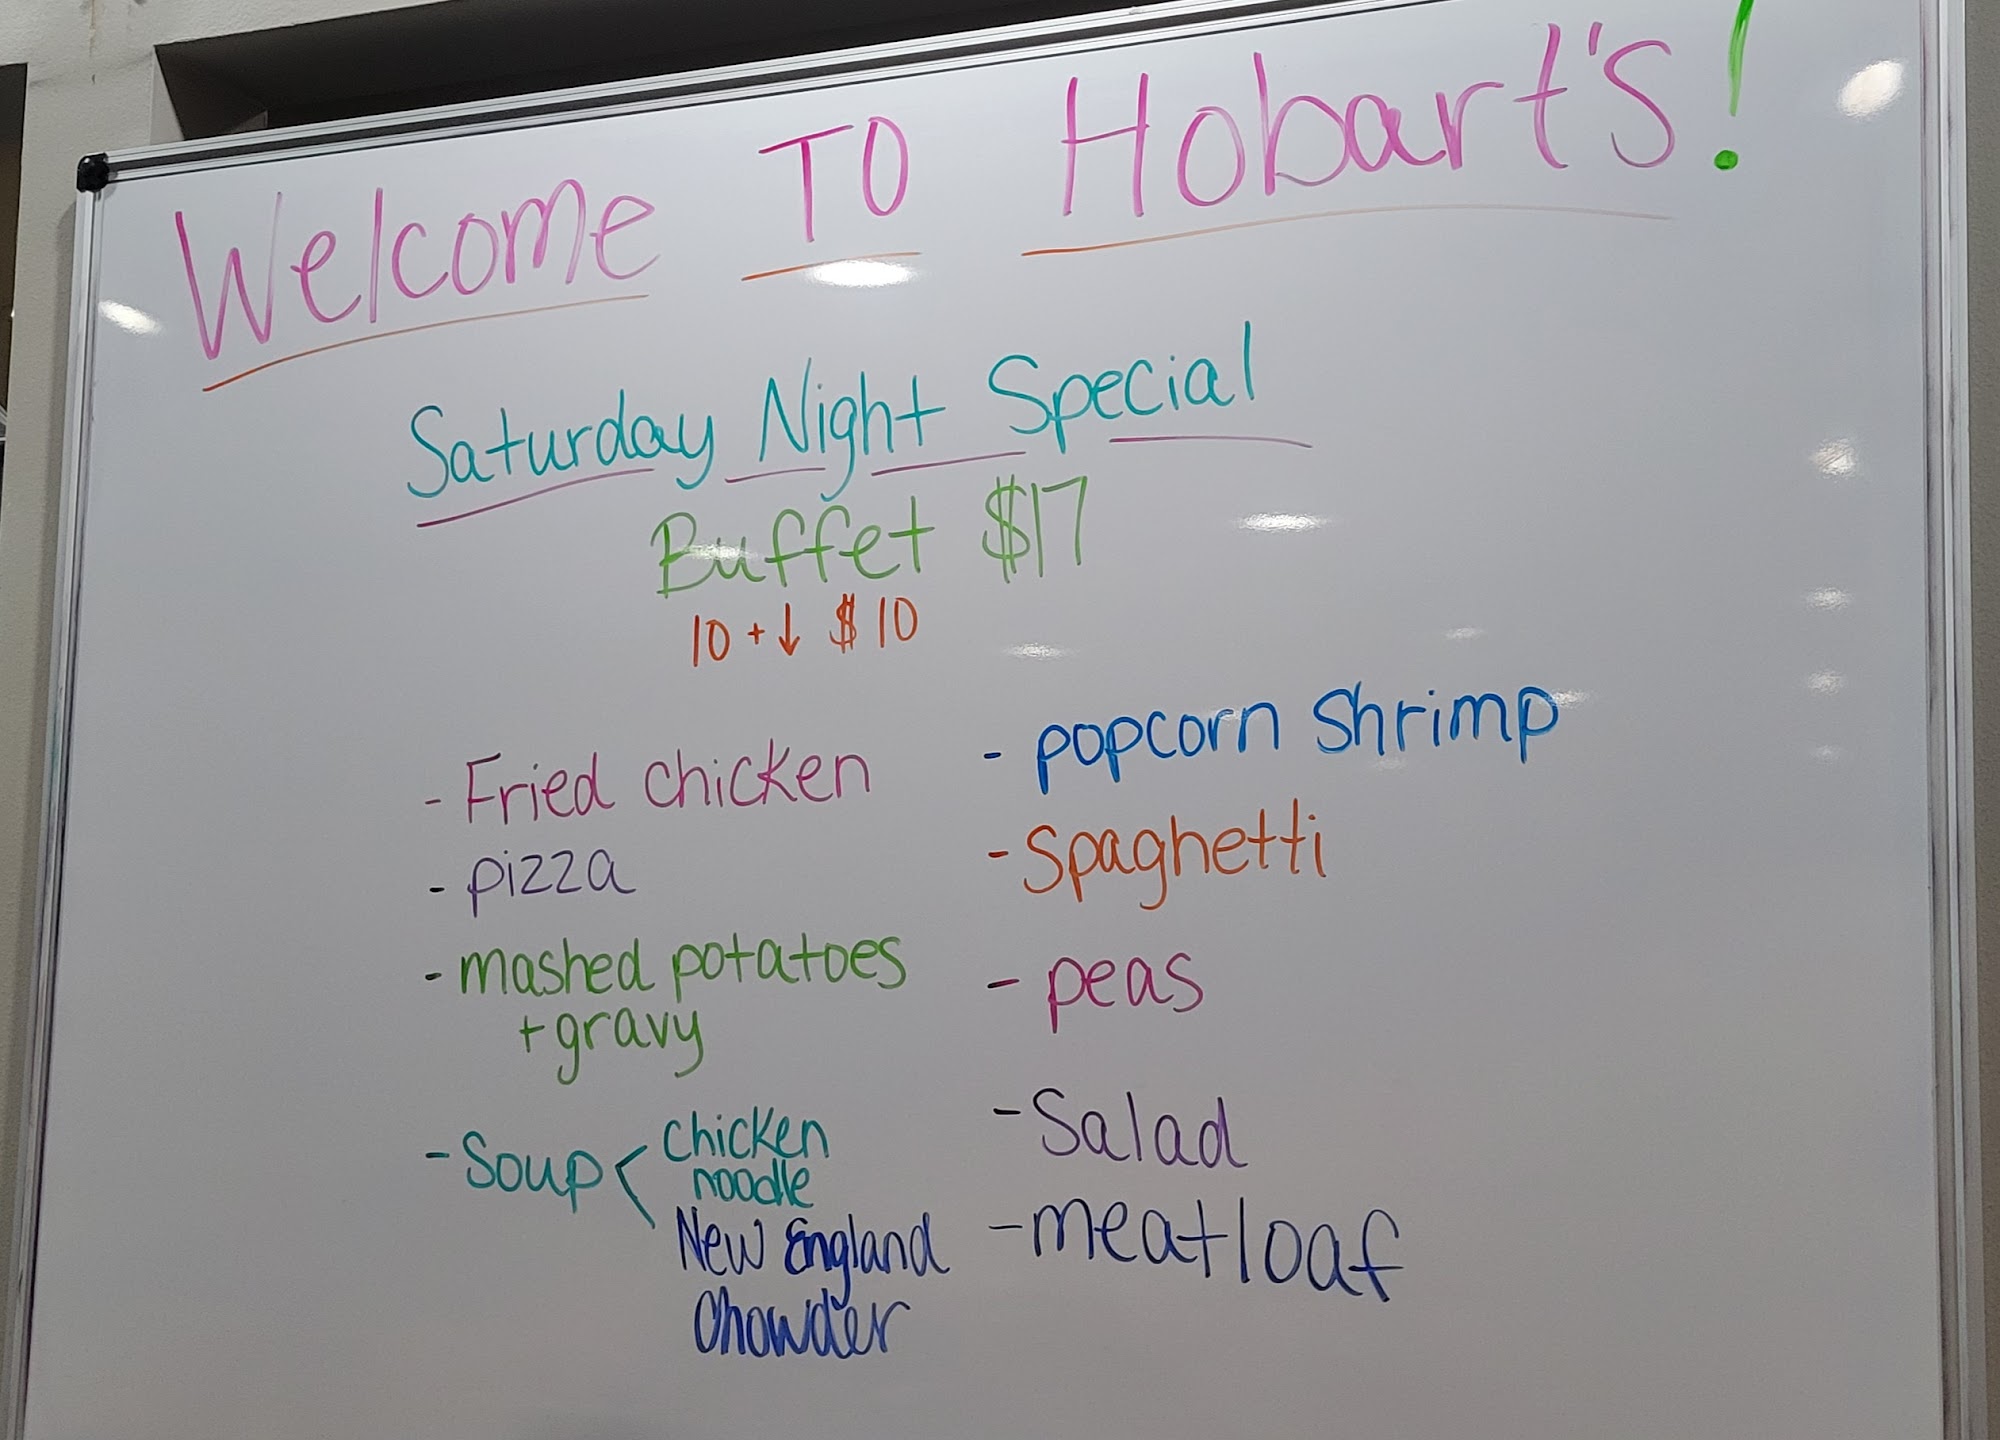 Welcome TO Hobart's!
Saturday Night Special
Buffet $17
10 + ↓ $10
- Fried chicken
- pizza
- mashed potatoes
+ gravy
- Soup < chicken
noodle
New England
Chowder
- popcorn shrimp
- Spaghetti
- peas
- Salad
- meatloaf